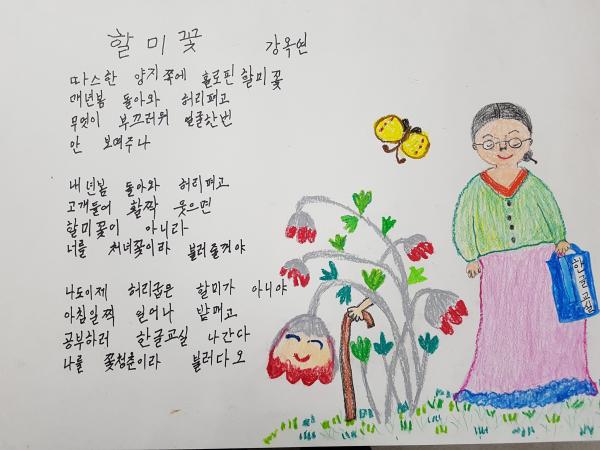 할미꽃
강옥연
따스한 양지쪽에 홀로핀 할미꽃
매년봄 돌아와 허리펴고
무엇이 부끄러워 얼굴한번
안 보여주나
내년봄 돌아와 허리펴고
고개들어 활짝 웃으면
할미꽃이 아니라
너를 처녀꽃이라 불러줄게야
나도이제 허리굽은 할미가 아니야
아침일찍 일어나 밭매고
공부하러 한글교실 나간다
나를 꽃청춘이라 불러다오
한글교실